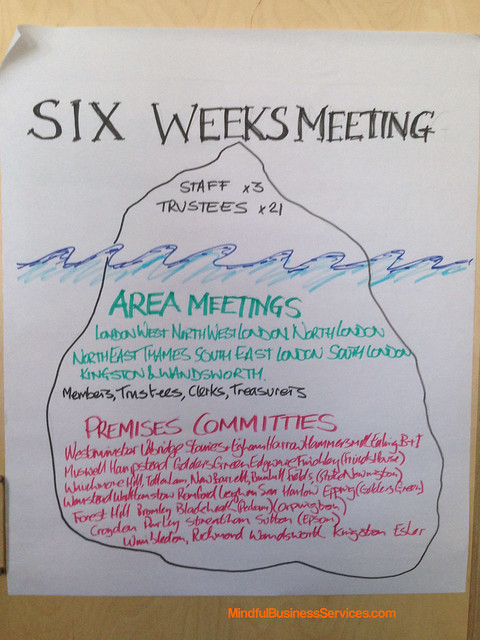 SIX WEEKS MEETING
STAFF x3
TRUSTEES x21
AREA MEETINGS
LONDON WEST NORTH WEST LONDON NORTH LONDON
NORTH EAST THAMES SOUTH EAST LONDON SOUTH LONDON
KINGSTON & WANDSWORTH.
Members, Trustees, Clerks, Treasurers
PREMISES COMMITTIES
Westminster Uxbridge Staines Egham Harrow Hammersmith Ealing B+I
Muswell Hampstead Golders Green Edgware Finchley (Friends House)
Winchmore Hill, Tottenham, New Barnett, Bunhill Fields, (Stoke Newington)
Wanstead Walthamstow Romford Leigh on Sea Harlow Epping (Golders Green)
Forest Hill Bromley Blackheath (Peckham) (Orpington)
Croydon Purley Streatham Sutton (Epsom)
Wimbledon, Richmond Wandsworth Kingston Esher
MindfulBusinessServices.com